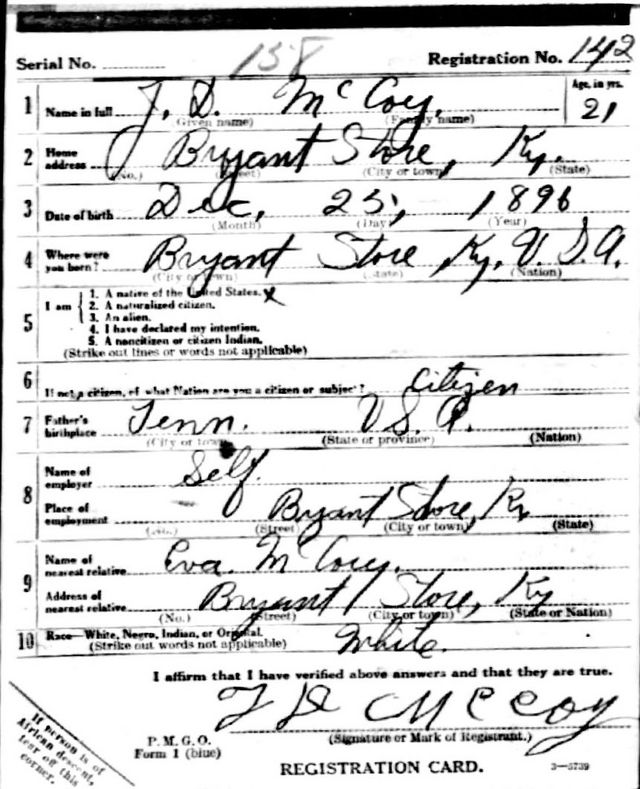 Serial No. 158 Registration No. 142
1 Name in full J. D. McCoy. Age, in yrs. 21
(Given name) (Family name)
2 Home address Bryant Store, Ky.
(No.) (Street) (City or town) (State)
3 Date of birth Dec, 25, 1896
(Month) (Day) (Year)
4 Where were you born? Bryant Store, Ky, U.S.A.
(City or town) (State) (Nation)
5 I am
1. A native of the United States. x
2. A naturalized citizen.
3. An alien.
4. I have declared my intention.
5. A noncitizen or citizen Indian.
(Strike out lines or words not applicable)
6 If not a citizen, of what Nation are you a citizen or subject? Citizen
7 Father's birthplace Tenn. U S. A.
(City or town) (State or province) (Nation)
8 Name of employer Self.
Place of employment Bryant Store, Ky
(No.) (Street) (City or town) (State)
9 Name of nearest relative Eva. McCoy.
Address of nearest relative Bryant Store, Ky
(No.) (Street) (City or town) (State or Nation)
10 Race—White, Negro, Indian, or Oriental. White.
(Strike out words not applicable)
I affirm that I have verified above answers and that they are true.
J D McCoy
P. M. G. O. (Signature or Mark of Registrant.)
Form 1 (blue)
REGISTRATION CARD. 3—5739
If person is of
African descent,
tear off this
corner.